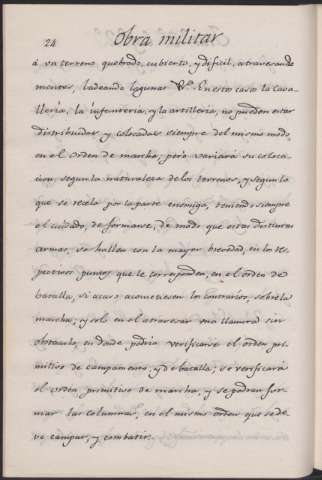 24
Obra militar
á un terreno quebrado, cubierto, y dificil, atravesando
montes, ladeando lagunas &ª. En este caso la cava-
lleria, la infanteria, y la artilleria, no pueden estar
distribuidas y colocadas siempre del mismo modo,
en el orden de marcha, pero variará su coloca-
cion, segun la naturaleza de los terrenos, y segun lo
que se recele por la parte enemiga, teniendo siempre
el cuidado, de formarse, de modo que estas distintas
armas, se hallen con la mayor brevedad, en los res-
pectivos puntos que le corresponden, en el orden de
batalla, si acaso acometiesen los contrarios, sobre la
marcha; y solo en el atravesar una llanura sin
obstaculo, en donde podria verificarse el orden pri-
mitivo de campamento, y de batalla; se verificará
el orden, primitivo de marcha, y se podran for-
mar las columnas, en el mismo orden que se de-
ve campar, y combatir.